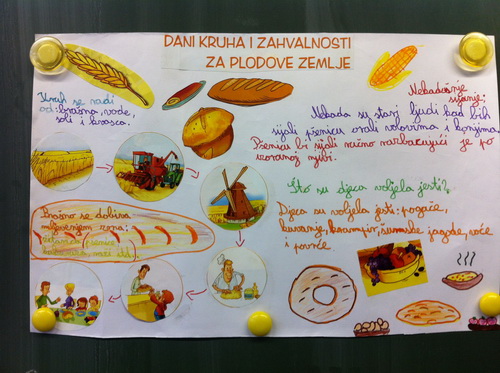 DANI KRUHA I ZAHVALNOSTI
ZA PLODOVE ZEMLJE
Kruh se radi
od: brašna, vode,
soli i kvasca.
Nekadašnje
sijanje:
Nekada su stari ljudi kad bih
sijali pšenicu orali volovima i konjima
Pšenicu bi sijali ručno razbacujući je po
uzoranoj njivi.
Što su djeca voljela jesti?
Djeca su voljela jesti: pogače,
kukuruz, krumpir, šumske jagode, voće
i povrće
Brašno se dobiva
mljevenjem zrna:
pšenice
kukuruza, raži itd.